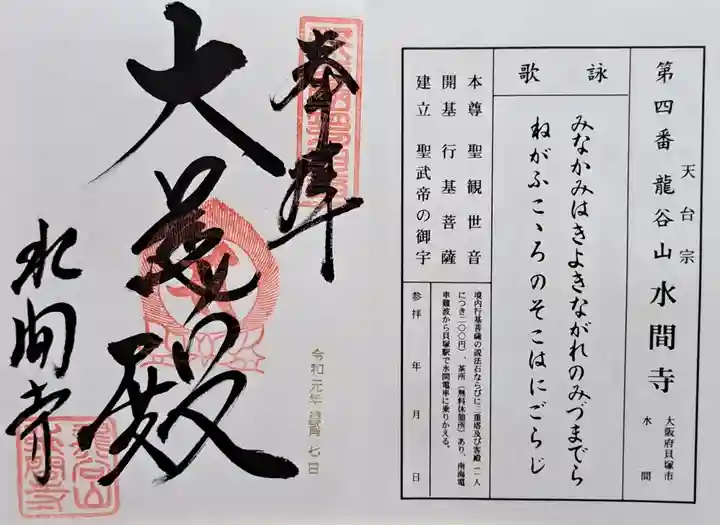 第四番 龍谷山 水間寺
天台宗
大阪府貝塚市
水間
詠歌
みなかみはきよきながれのみづまでら
ねがふこゝろのそこはにごらじ
本尊 聖観世音
開基 行基菩薩
建立 聖武帝の御宇
境内行基菩薩の説法石ならびに三重塔及び客殿(一人
につき二〇〇円)、茶所(無料休憩所)あり、南海電
車難波から貝塚駅で水間電車に乗りかえる。
参拝 年 月 日
奉拝
大慈殿
水間寺
令和元年 月七日
龍谷山
水間寺